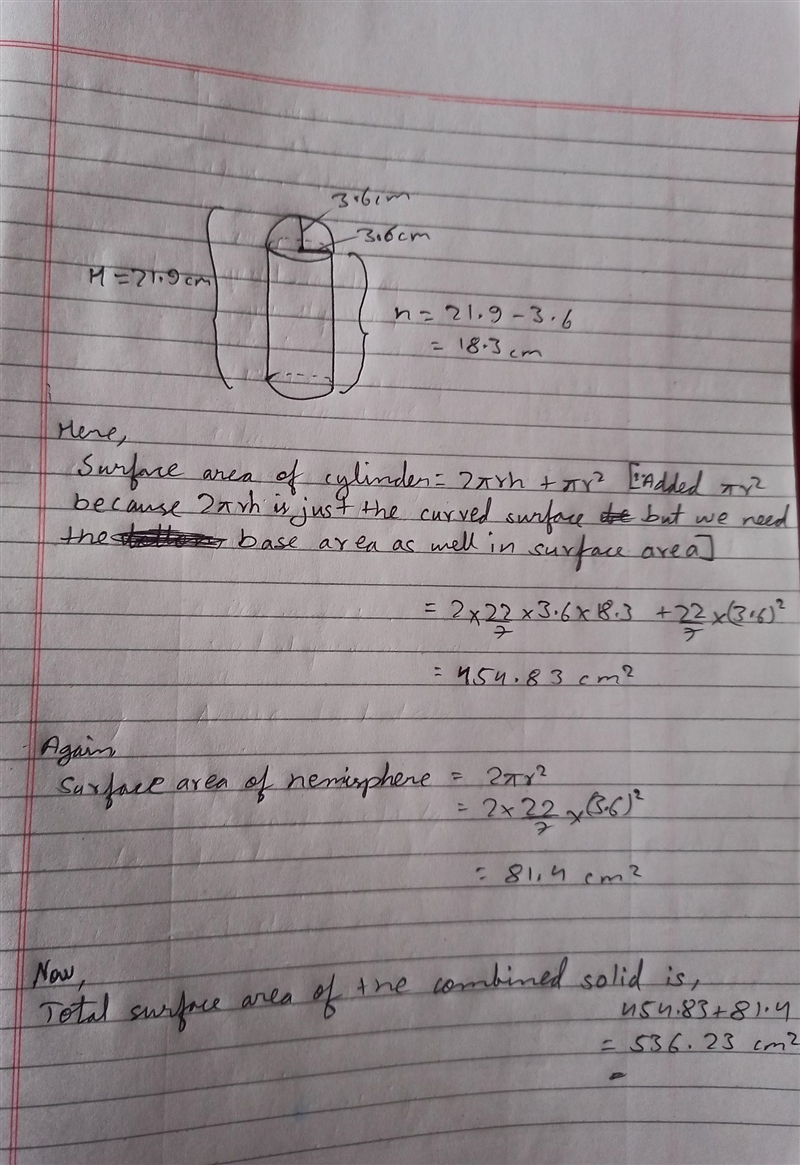 3.6cm
3.6cm
H = 21.9 cm
h = 21.9 - 3.6
= 18.3 cm
Here,
Surface area of cylinder = 2πrh + πr² [∵Added πr²
because 2πrh is just the curved surface but we need
the base area as well in surface area]
= 2 × 22/7 × 3.6 × 18.3 + 22/7 × (3.6)²
= 454.83 cm²
Again,
Surface area of hemisphere = 2πr²
= 2 × 22/7 × (3.6)²
= 81.4 cm²
Now,
Total surface area of the combined solid is,
454.83 + 81.4
= 536.23 cm²